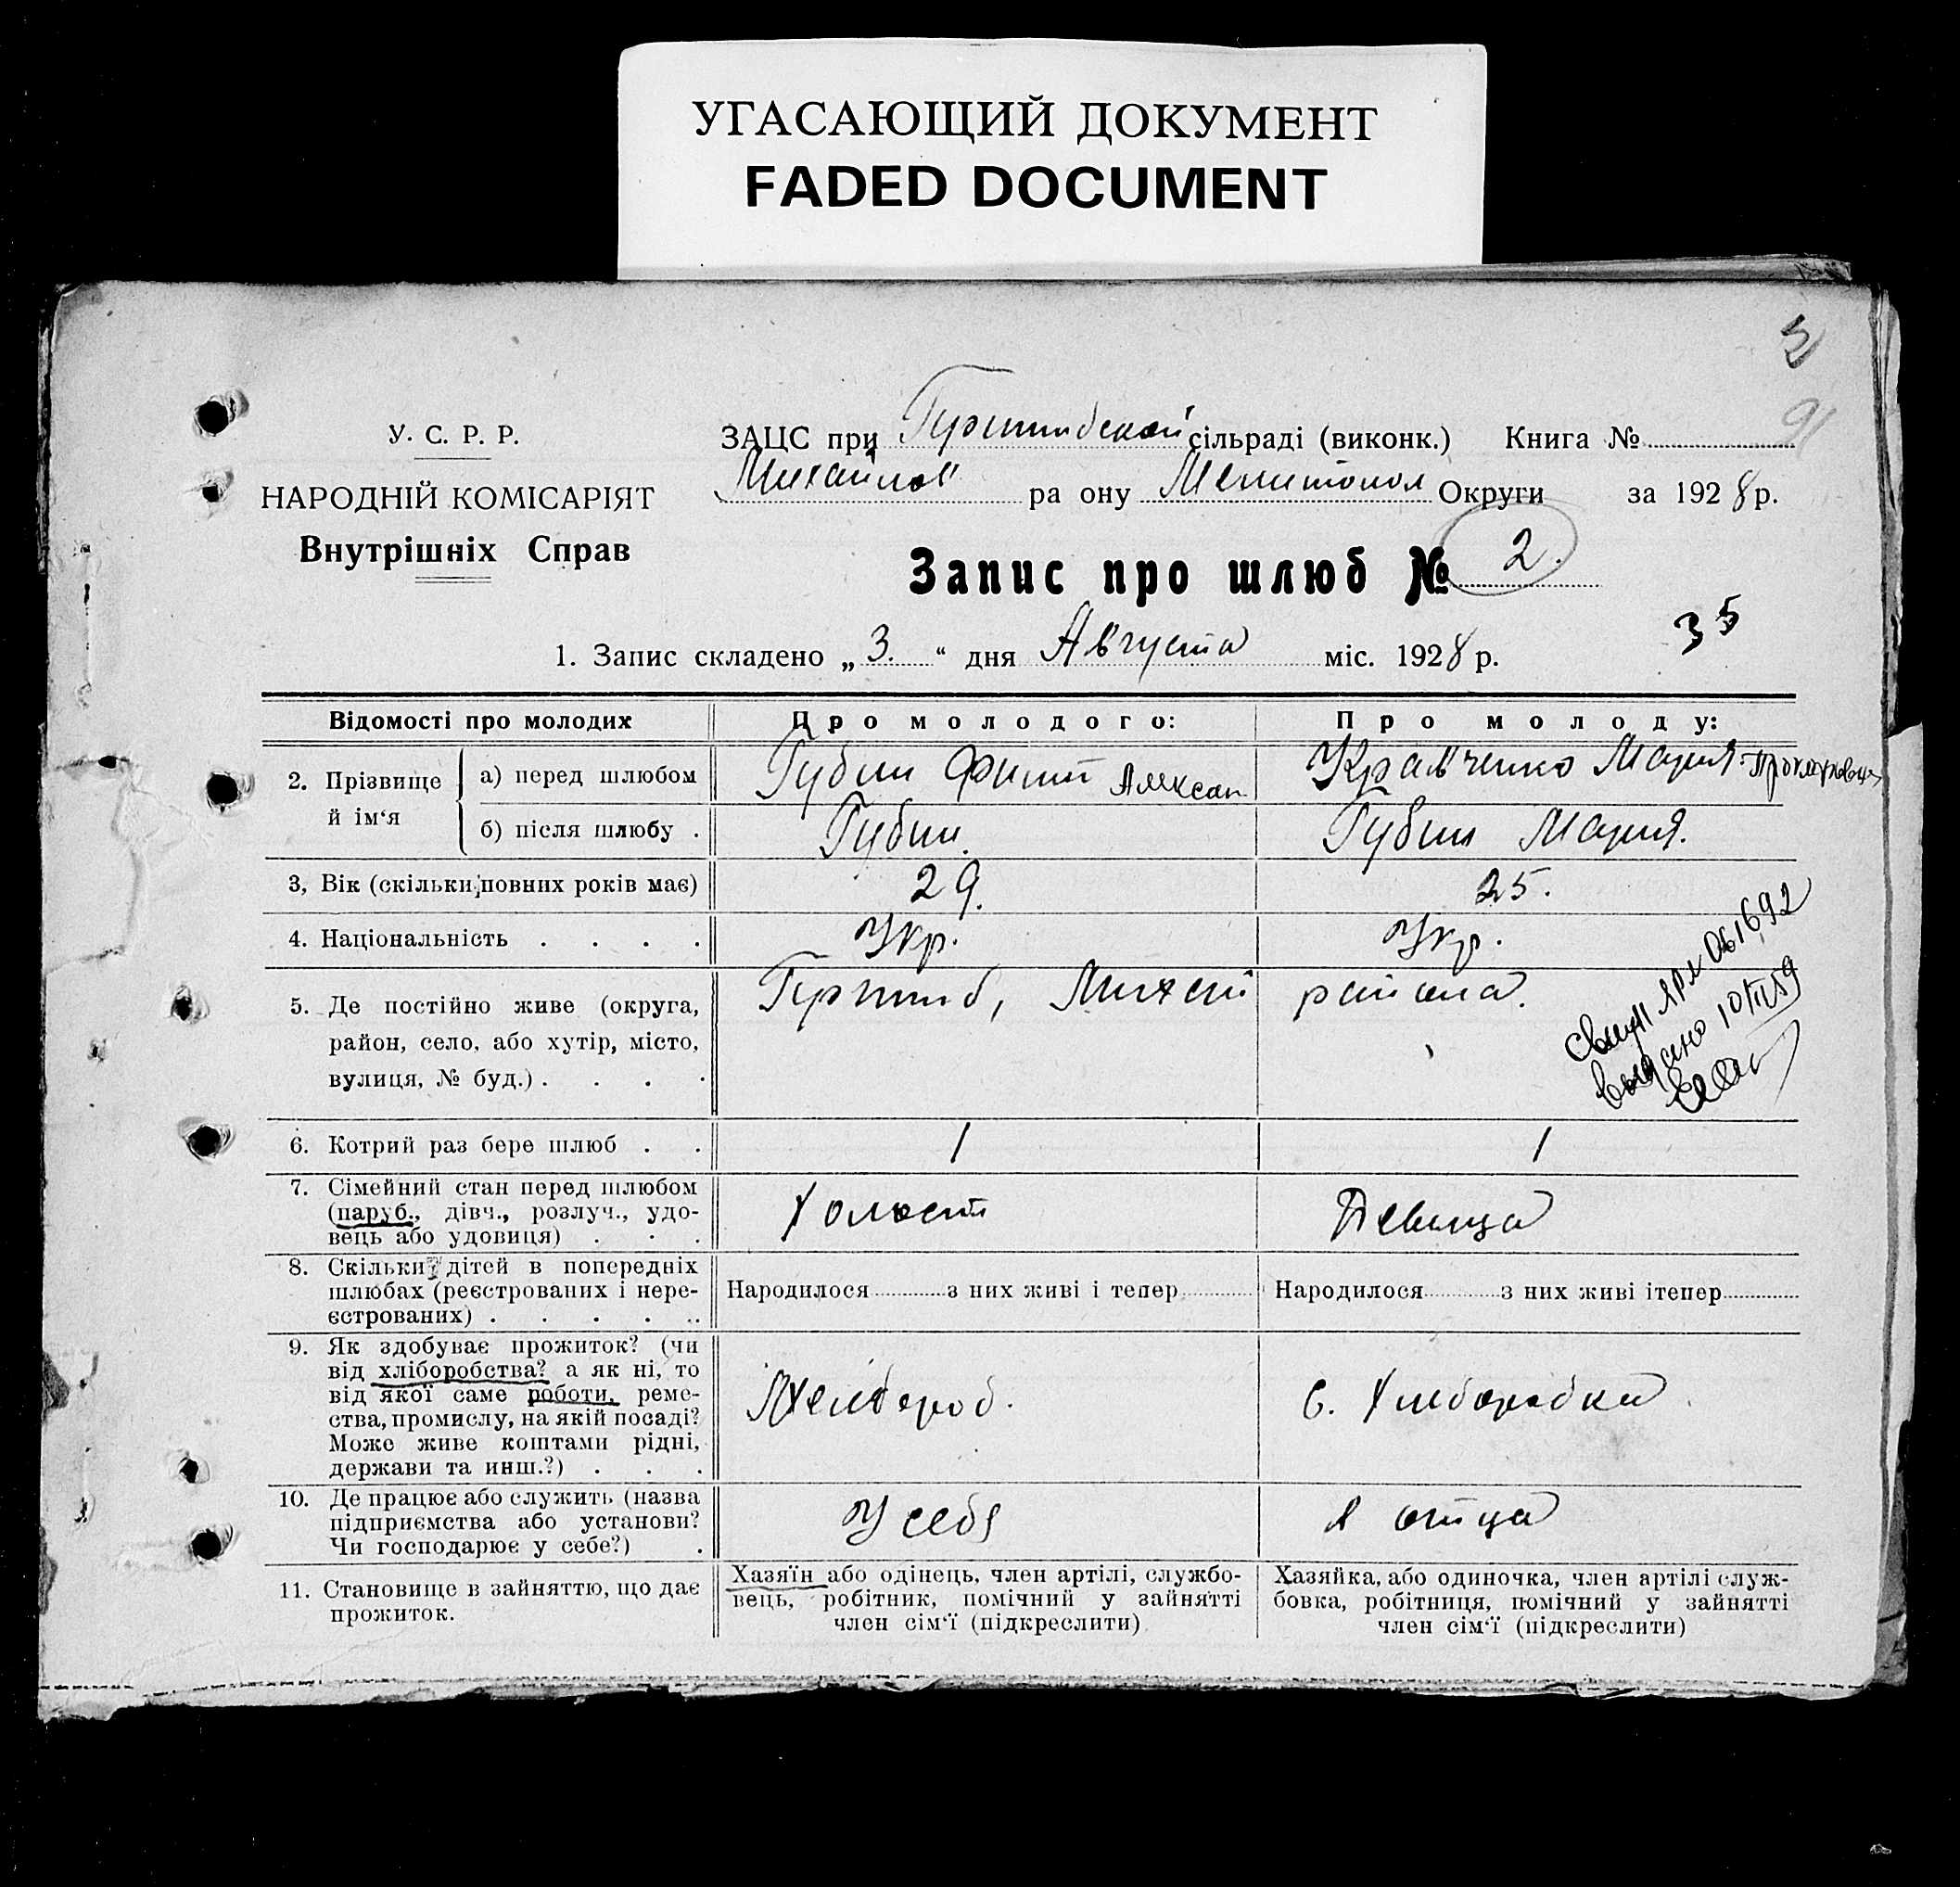 УГАСАЮЩИЙ ДОКУМЕНТ
FADED DOCUMENT
91
У. С. Р. Р.
НАРОДНІЙ КОМІСАРІЯТ
Внутрішніх Справ
ЗАЦС при сільраді (виконк.) Книга №
Михайлов ра ону Мелитопол Округи за 1928 р.
Запис про шлюб № 2.
35
1. Запис складено „3.“ дня Августа міс. 1928 р.
Відомості про молодих Про молодого: Про молоду:
2. Прізвище й ім‘я
а) перед шлюбом Губин Алексан Кравченко Мария
б) після шлюбу . Губин. Губин Мария.
3, Вік (скільки повних років має) 29. 25.
4. Національність . . . . Укр. Укр.
5. Де постійно живе (округа,
район, село, або хутір, місто,
вулиця, № буд.) . . . .
района.
061692
выдано 10/II 59
6. Котрий раз бере шлюб . . 1 1
7. Сімейний стан перед шлюбом
(паруб., дівч., розлуч., удо-
вець або удовиця) . . .
Холост Девица
8. Скільки дітей в попередніх
шлюбах (реєстрованих і нере-
єстрованих) . . . . ..
Народилося з них живі і тепер Народилося з них живі ітепер
9. Як здобуває прожиток? (чи
від хліборобства? а як ні, то
від якої саме роботи, реме-
ства, промислу, на якій посаді?
Може живе коштами рідні,
держави та инш.?) . . .
10. Де працює або служить (назва
підприємства або установи?
Чи господарює у себе?) .
У себя отца
11. Становище в зайняттю, що дає
прожиток.
Хазяїн або одінець, член артілі, службо-
вець, робітник, помічний у зайнятті
член сім‘ї (підкреслити)
Хазяйка, або одиночка, член артілі служ-
бовка, робітниця, помічний у зайнятті
член сім‘ї (підкреслити)